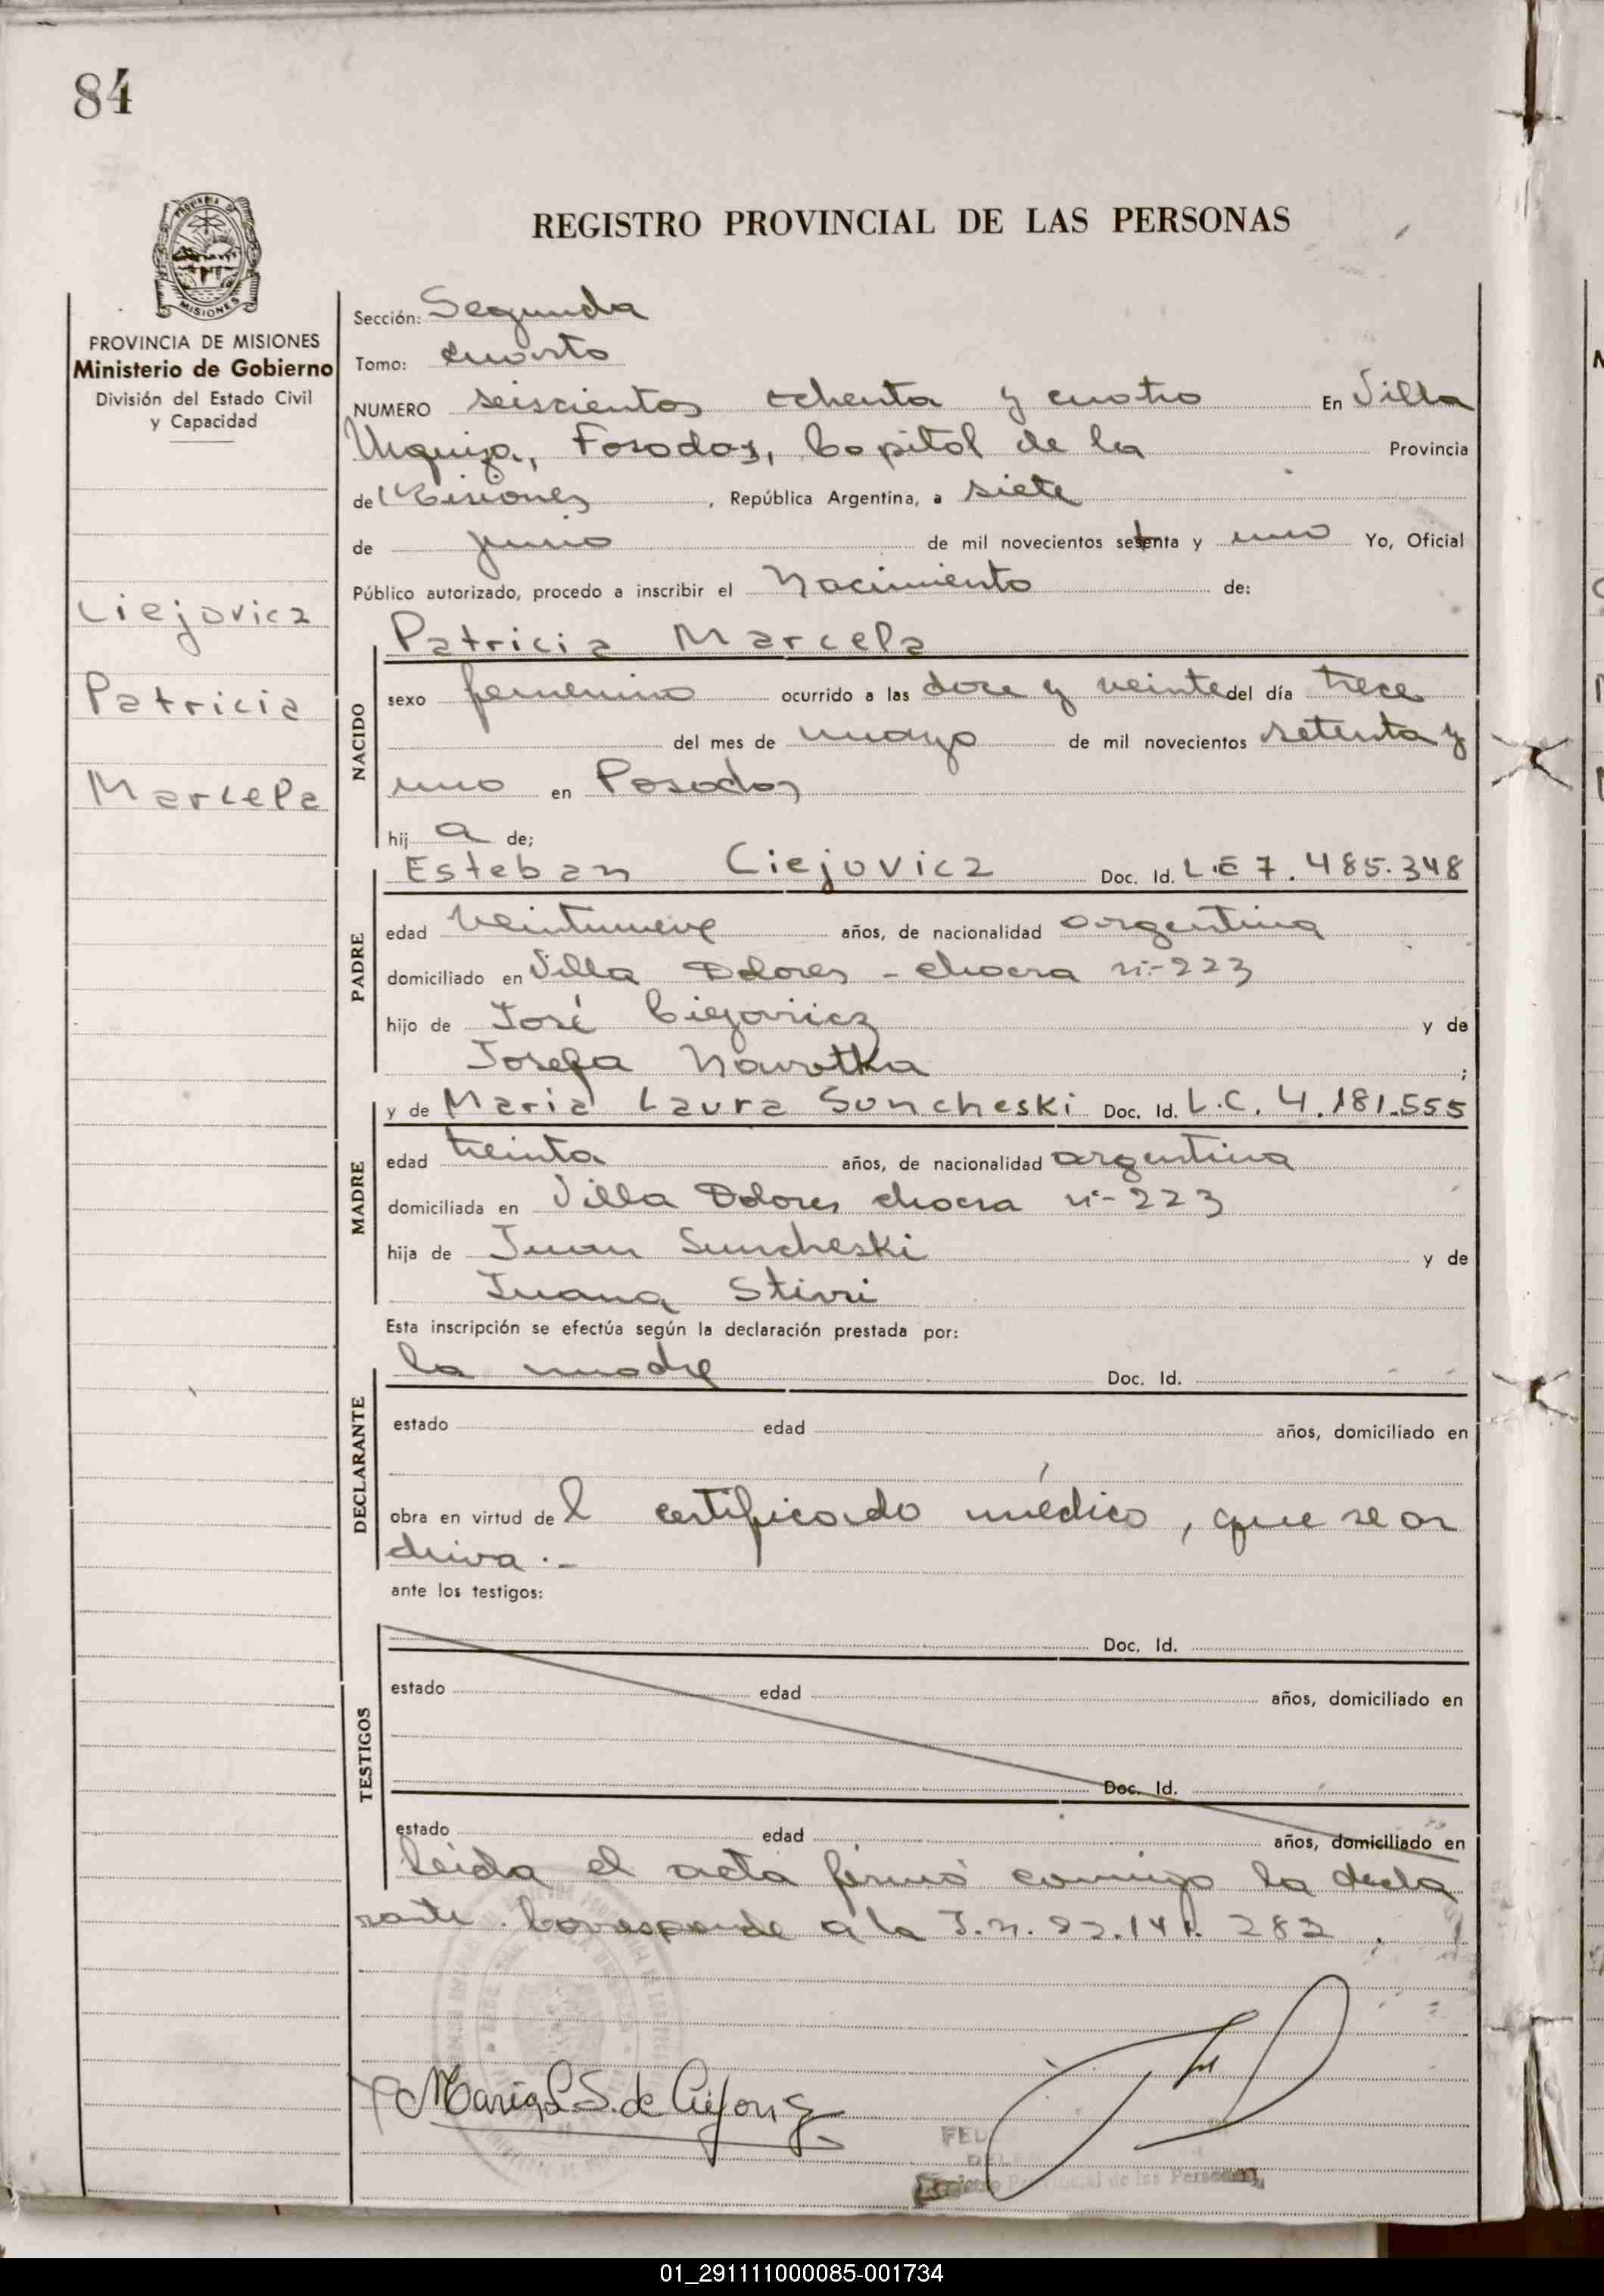 84
PROVINCIA DE MISIONES
Ministerio de Gobierno
División del Estado Civil
y Capacidad
Ciejovicz
Patricia
Marcela
REGISTRO PROVINCIAL DE LAS PERSONAS
Sección: Segunda
Tomo: cuarto
NUMERO seiscientos ochenta y cuatro En Villa
Urquiza, Posadas, Capital de la Provincia
de Misiones, República Argentina, a siete
de junio de mil novecientos setenta y uno Yo, Oficial
Público autorizado, procedo a inscribir el Nacimiento de:
Patricia Marcela
NACIDO
sexo femenino ocurrido a las doce y veinte del día trece
del mes de mayo de mil novecientos setenta y
uno en Posadas
hij a de;
PADRE
Esteban Ciejovicz Doc. Id. L.E 7.485.348
edad veintinueve años, de nacionalidad argentina
domiciliado en Villa Dolores - chacra nº 223
hijo de José Ciejovicz y de
Josefa Navotka ;
MADRE
y de Maria Laura Suncheski Doc. Id. L.C. 4.181.555
edad treinta años, de nacionalidad argentina
domiciliada en Villa Dolores chacra nº 223
hija de Juan Suncheski y de
Juana
Esta inscripción se efectúa según la declaración prestada por:
DECLARANTE
la madre Doc. Id.
estado edad años, domiciliado en
obra en virtud de l certificado médico, que se ar
chiva.-
ante los testigos:
TESTIGOS
Doc. Id.
estado edad años, domiciliado en
Doc. Id.
estado edad años, domiciliado en
Leída el acta firmó conmigo la decla
rante. Corresponde a la I.n. 22.141.282.
María L. S. de
Registro Provincial de las Personas
01_291111000085-001734